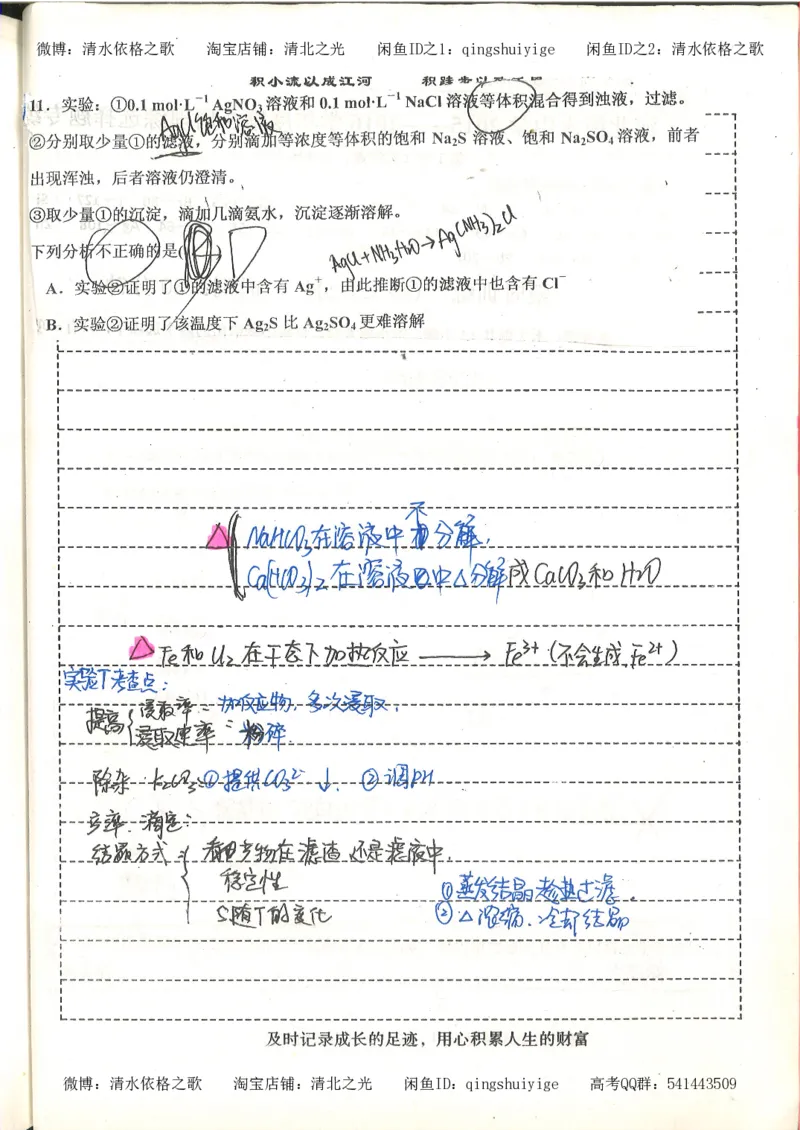 微博：清水依格之歌 淘宝店铺：清北之光 闲鱼ID之1：qingshuiyige 闲鱼ID之2：清水依格之歌
积小流以成江河
11．实验：①0.1 mol·L⁻¹ AgNO₃ 溶液和 0.1 mol·L⁻¹ NaCl 溶液等体积混合得到浊液，过滤。
AgCl饱和溶液
②分别取少量①的滤液，分别滴加等浓度等体积的饱和 Na₂S 溶液、饱和 Na₂SO₄ 溶液，前者
出现浑浊，后者溶液仍澄清。
③取少量①的沉淀，滴加几滴氨水，沉淀逐渐溶解。
AgCl+NH₃·H₂O→Ag(NH₃)₂Cl
下列分析不正确的是( D
A．实验②证明了①的滤液中含有 Ag⁺，由此推断①的滤液中也含有 Cl⁻
B．实验②证明了该温度下 Ag₂S 比 Ag₂SO₄ 更难溶解
NaHCO₃在溶液中不分解，
Ca(HCO₃)₂在溶液中△分解成CaCO₃和H₂O
Fe和Cl₂在干态下加热反应 → Fe³⁺（不会生成Fe²⁺）
实验T考查点：
提高 浸取率：加反应物，多次浸取，
浸取速率：粉碎
除杂 K₂CO₃：①提供CO₃²⁻ ↓. ②调pH
结晶方式 看产物在滤渣还是滤液中，
稳定性
①蒸发结晶趁热过滤。
S随T的变化
②△浓缩．冷却结晶
及时记录成长的足迹，用心积累人生的财富
微博：清水依格之歌 淘宝店铺：清北之光 闲鱼ID：qingshuiyige 高考QQ群：541443509